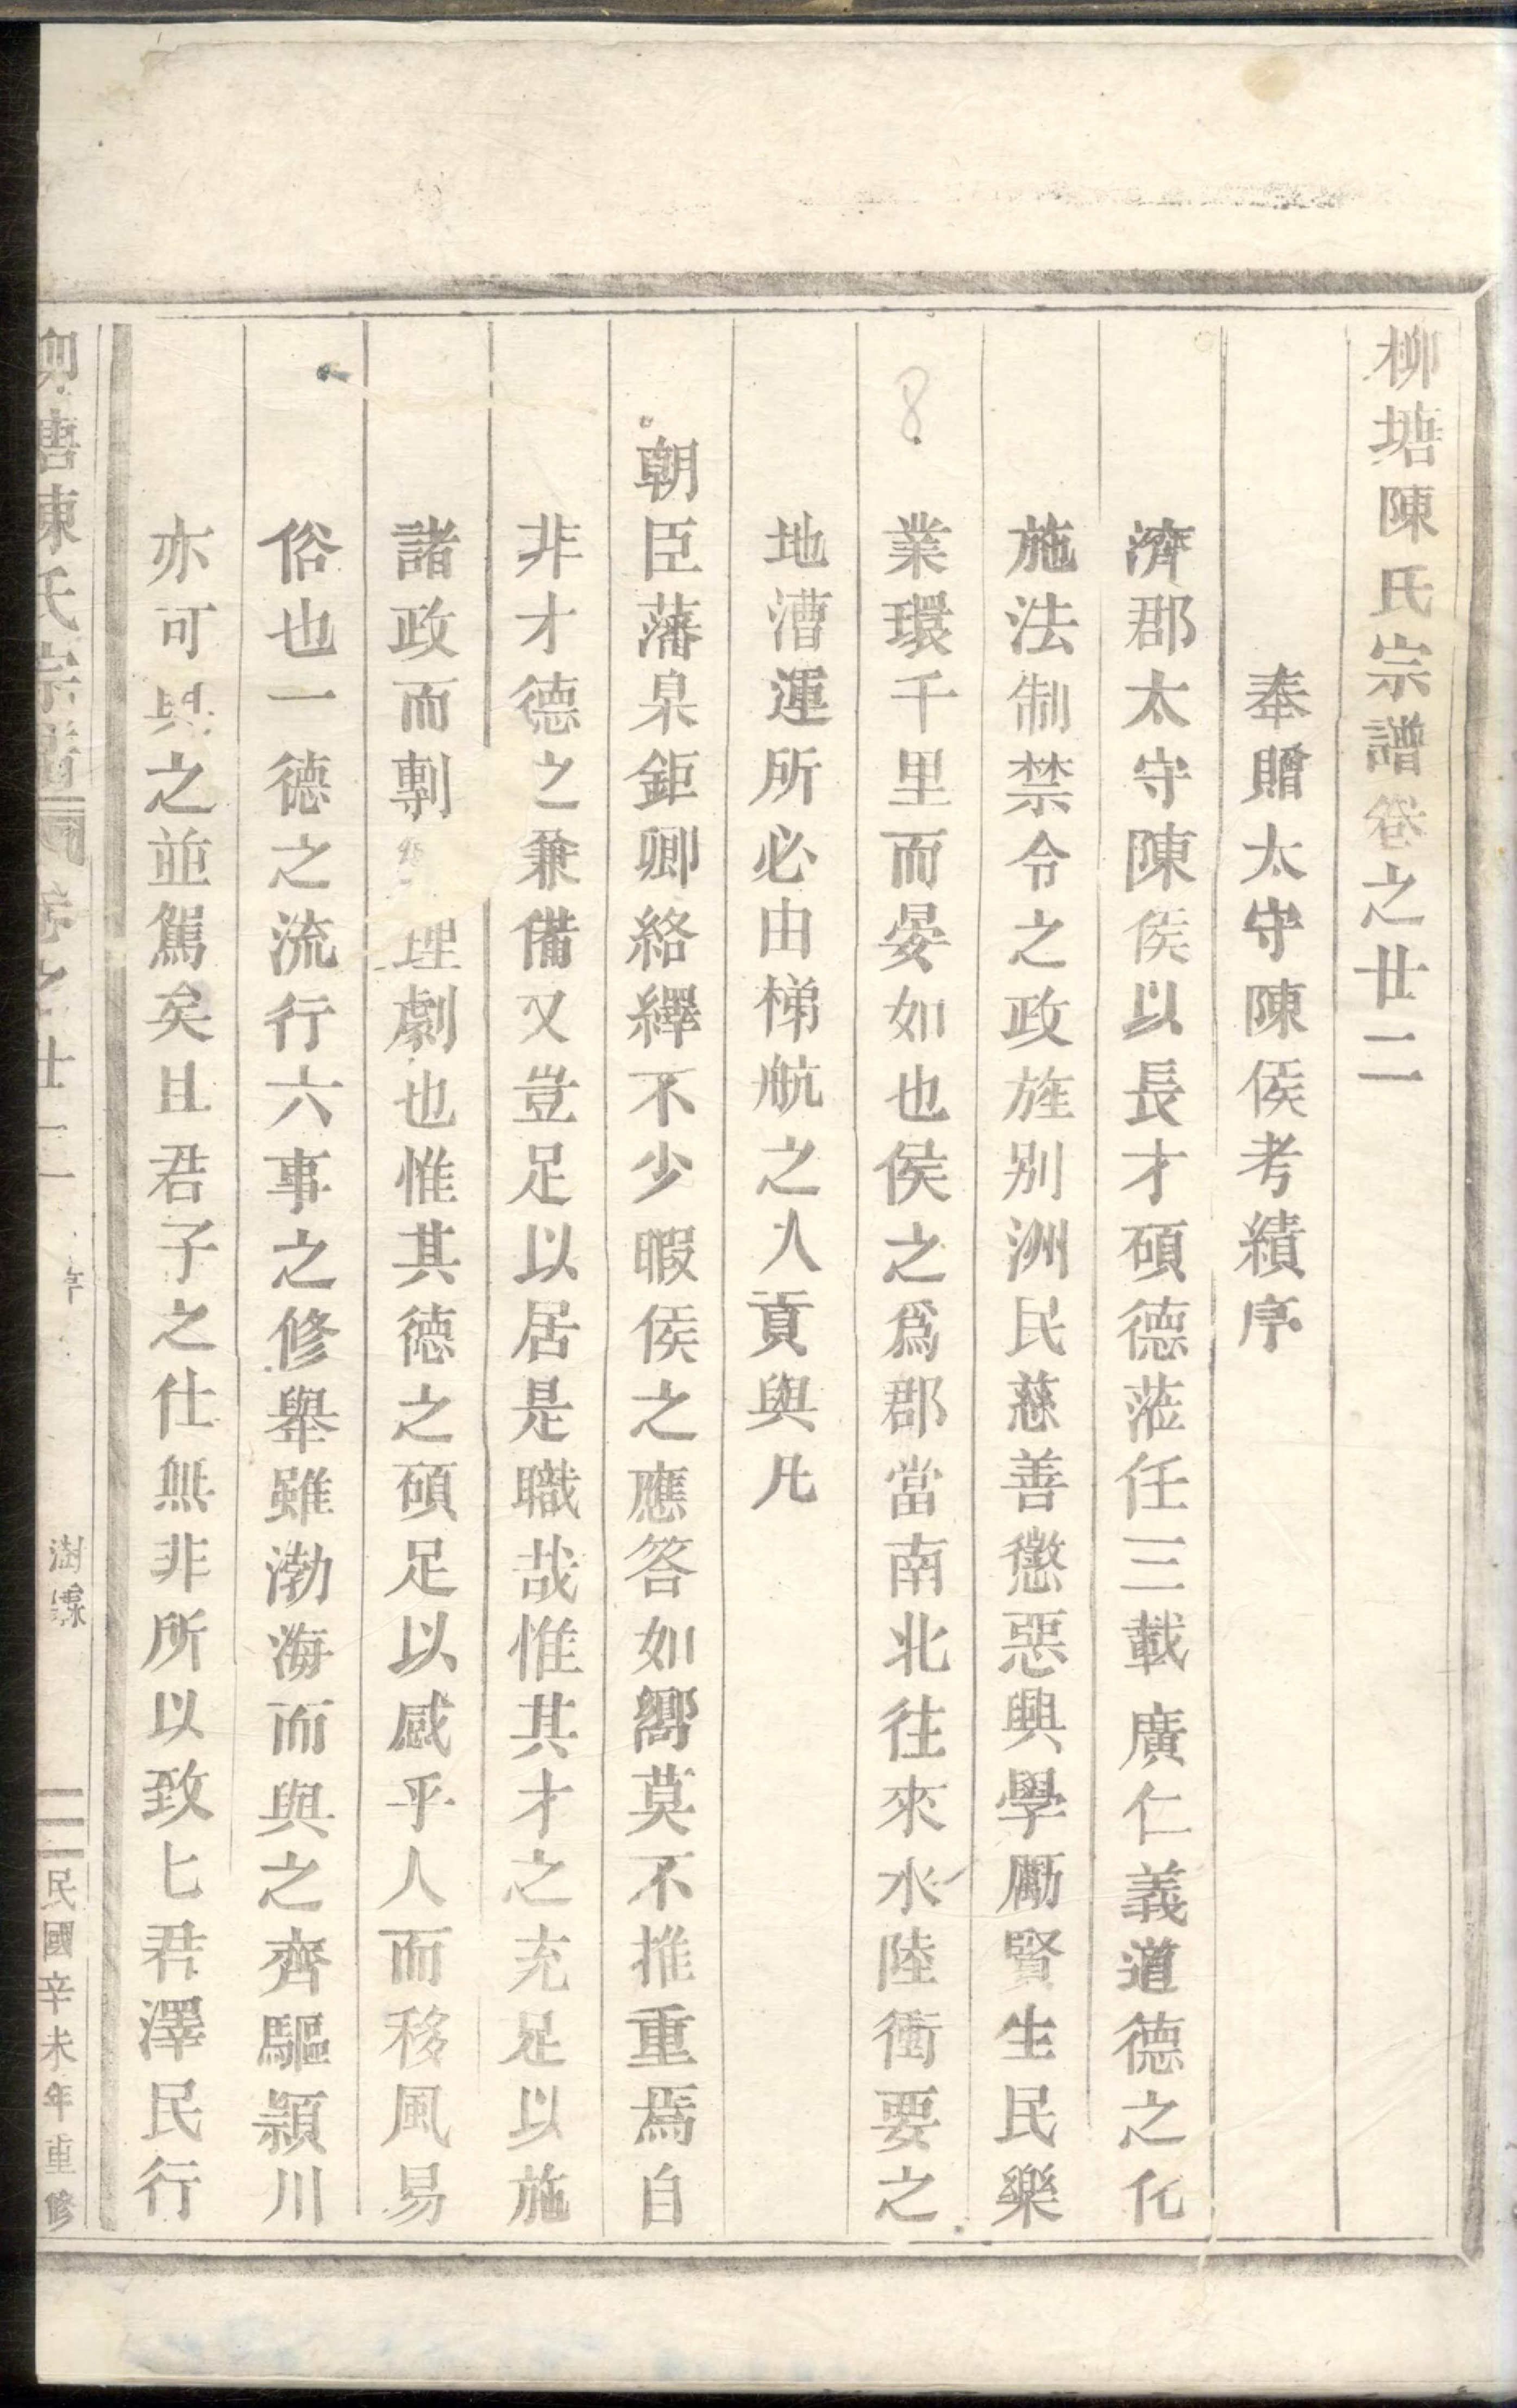 柳塘陳氏宗譜卷之廿二
奉贈太守陳侯考績序
濟郡太守陳侯以長才碩德蒞任三載廣仁義道德之化
施法制禁令之政旌别洲民慈善懲惡興學勵賢生民樂
業環千里而晏如也侯之爲郡當南北往來水陸衝要之
地漕運所必由梯航之入貢與凡
朝臣藩臬鉅卿絡繹不少暇侯之應答如嚮莫不推重焉自
非才德之兼備又豈足以居是職哉惟其才之充足以施
諸政而剸理劇也惟其德之碩足以感乎人而移風易
俗也一德之流行六事之修舉雖渤海而與之齊驅潁川
亦可與之並駕矣且君子之仕無非所以致匕君澤民行
柳塘陳氏宗譜 卷之廿二 序 澍霖 一 民國辛未年重修
8